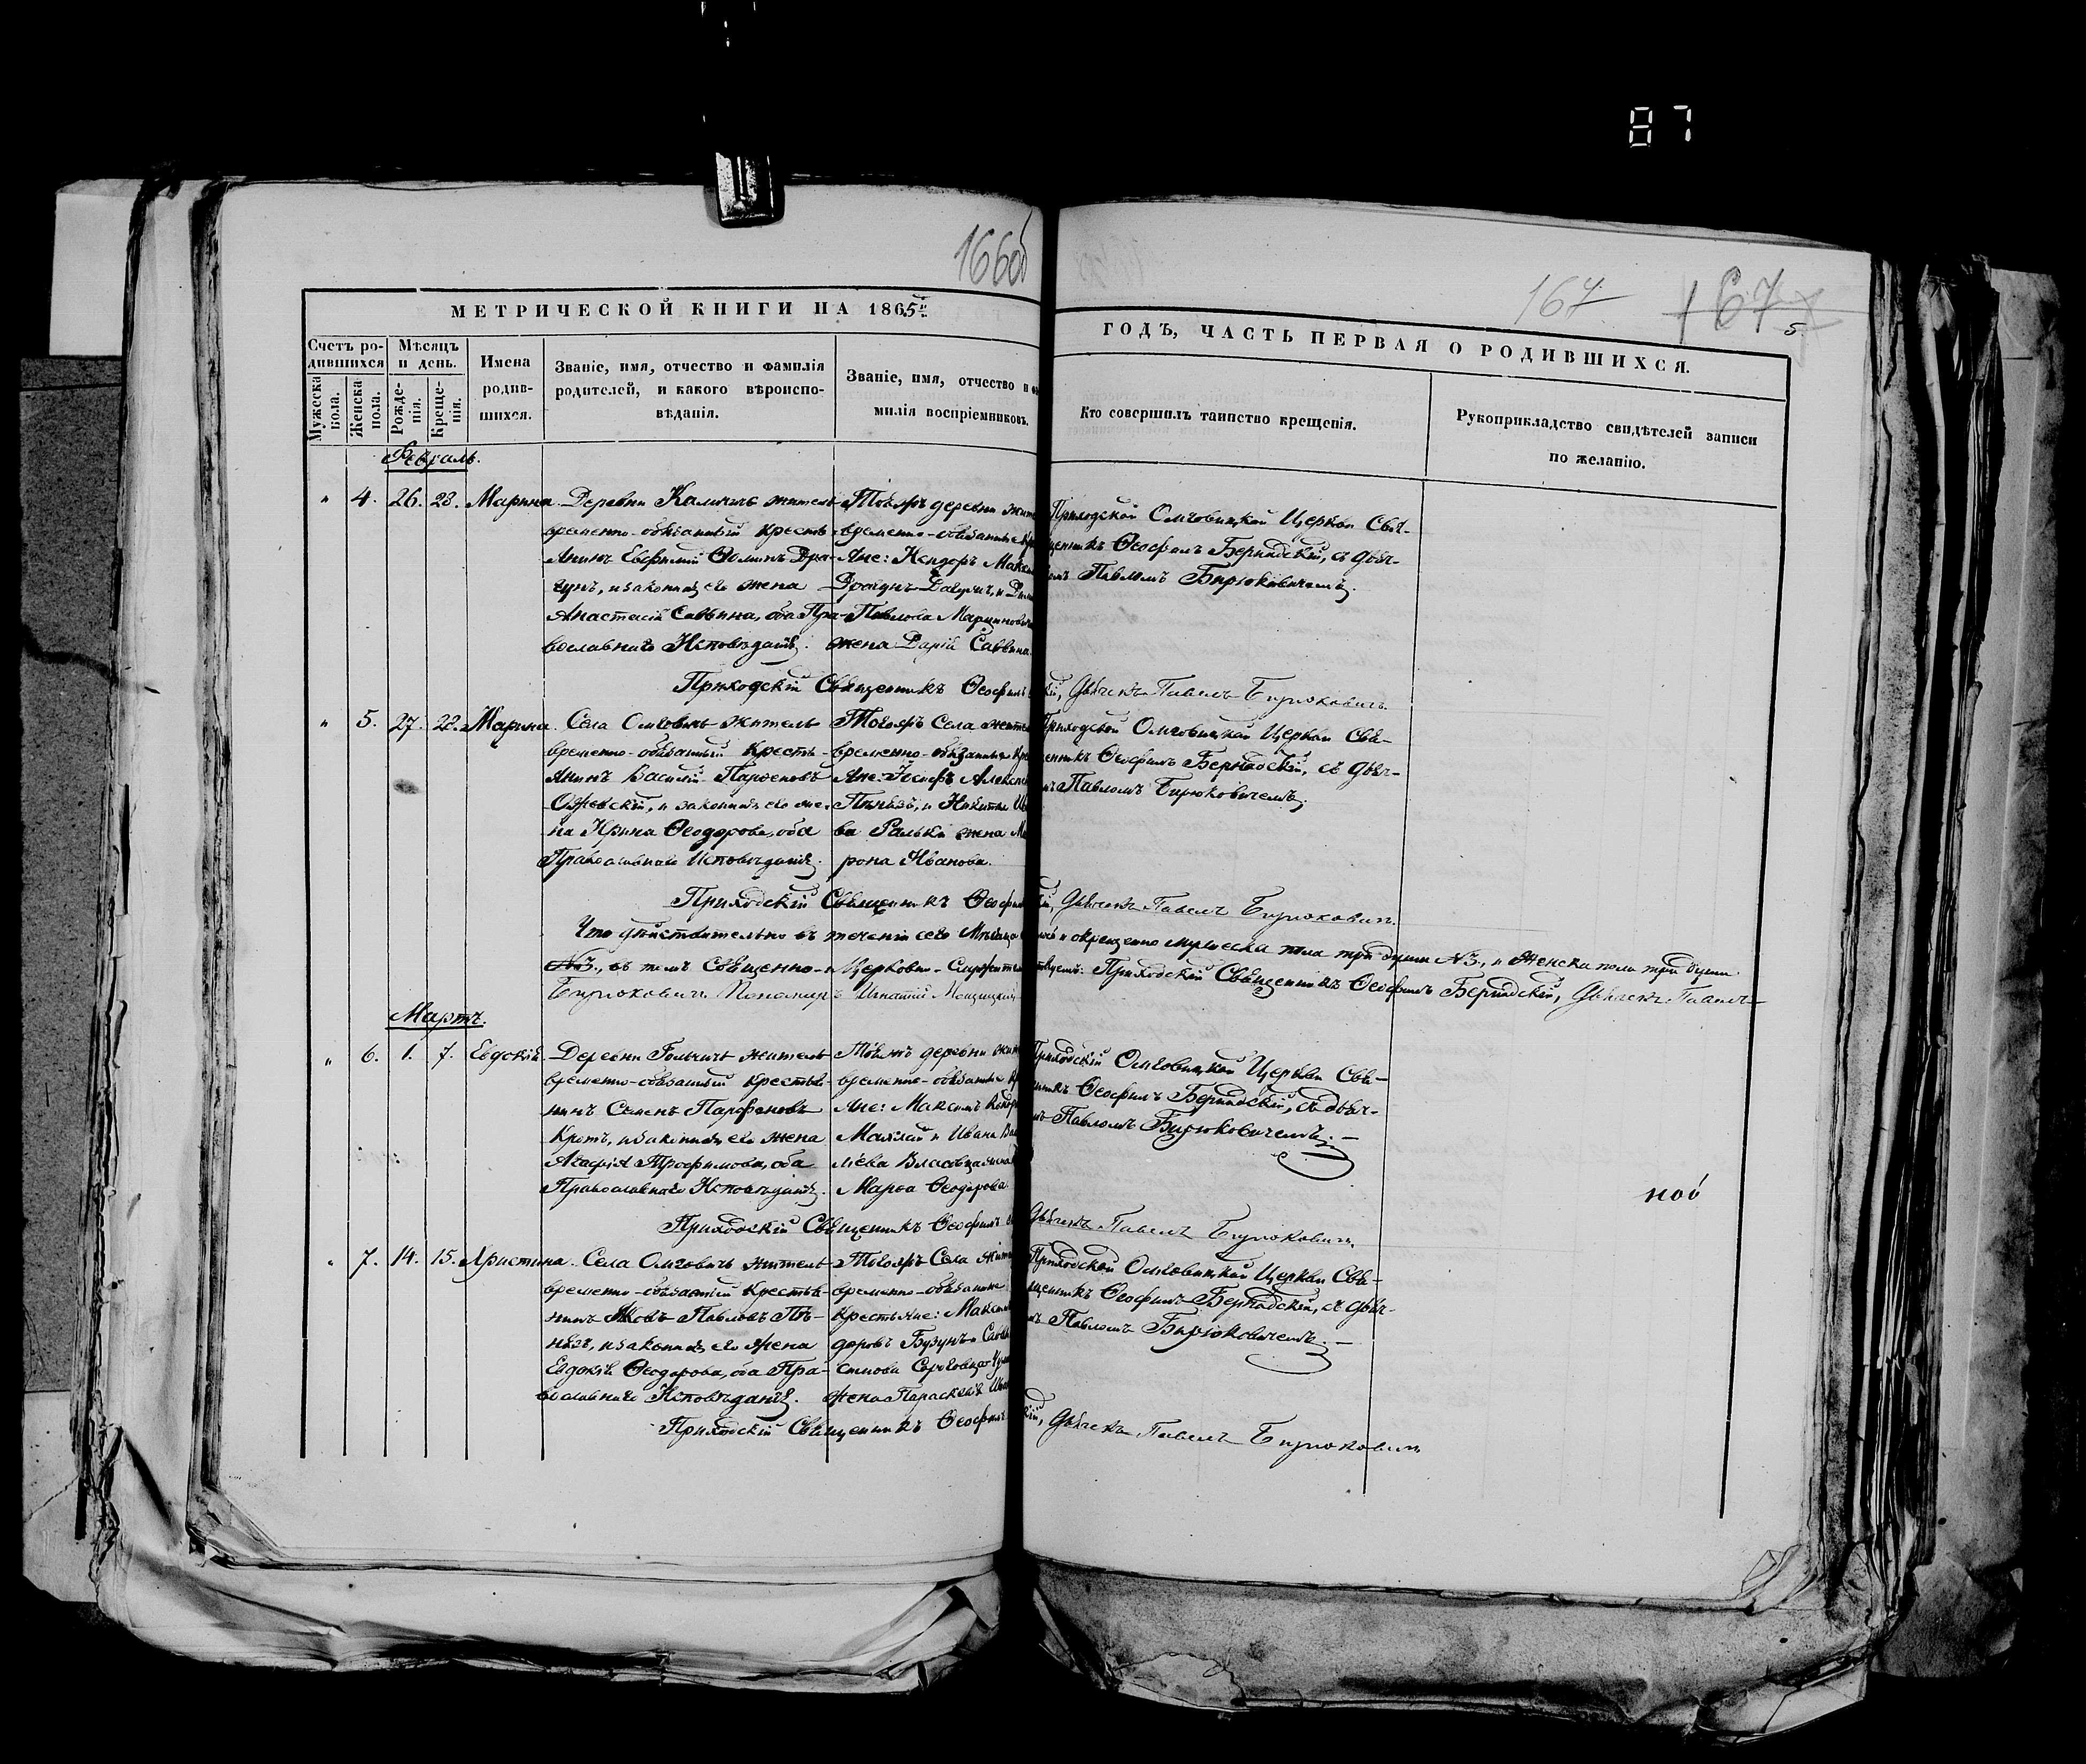 87
166об
167
167
5.
МЕТРИЧЕСКОЙ КНИГИ НА 1865й
ГОДЪ, ЧАСТЬ ПЕРВАЯ О РОДИВШИХСЯ.
Счетъ ро-
дившихся
Мѣсяцъ
и день.
Мужеска
пола.
Женска
пола.
Рожде-
нія.
Креще-
нія.
Имена
родив-
шихся.
Званіе, имя, отчество и фамилія
родителей, и какого вѣроиспо-
вѣданія.
Званіе, имя, отчество и фа
милія воспріемниковъ.
Кто совершилъ таинство крещенія.
Рукоприкладство свидѣтелей записи
по желанію.
Февраль.
" 4. 26. 28. Марина.
Деревни житель
временно-обязанный кресть-
янинъ Евфимій Ѳоминъ Дра-
гунъ, и законная его жена
Анастасія Саввина, оба Пра-
вославнаго Исповѣданія.
Тойжъ деревни жит
временно-обязанные кр
яне:
Павлова
жена Дарія Саввина.
Приходской Омговицкой Церкви Свя-
щенникъ Ѳеофилъ Бернадскій, съ дьяч-
комъ Павломъ Бирюковичемъ.
Приходскій Священникъ Ѳеофилъ кій, Дьячекъ Павелъ Бирюковичъ.
" 5. 27. 28. Марина.
Села Омговичъ житель
временно-обязанный кресть-
янинъ Василій Парѳеновъ
и законная его же-
на Ирина Ѳеодорова, оба
Православнаго Исповѣданія.
Тогожъ Села жите
временно-обязанные кре
яне: Іосифъ Алексѣ
и Никиты Ив
ва жена Ма
рона Иванова.
Приходской Омговицкой Церкви Свя-
щенникъ Ѳеофилъ Бернадскій, съ дьяч-
мъ Павломъ Бирюковичемъ.
Приходскій Священникъ Ѳеофил ій, Дьячекъ Павелъ Бирюковичъ.
Что дѣйствительно въ теченіи сего Мѣсяца и окрещено мужеска пола три души №3., и Женска пола три души
№3., въ томъ Священно-Церковно-Служител твуемъ: Приходскій Священникъ Ѳеофилъ Бернадскій, Дьячекъ Павелъ
Бирюковичъ Пономарь Игнатій
Мартъ.
" 6. 1. 7. Евдокія.
Деревни житель
временно-обязанный крестья-
нинъ Семенъ Парѳеновъ
Кротъ, и законная его жена
Агафія Трофимова, оба
Православнаго Исповѣданія.
Тойжъ деревни жит
временно-обязанные кр
яне: Максимъ
и Ивана Ва
лева жена
Марѳа Ѳеодорова.
Приходской Омговицкой Церкви Свя-
нникъ Ѳеофилъ Бернадскій, съ дьяч-
мъ Павломъ Бирюковичемъ.
ноб
Приходскій Священникъ Ѳеофилъ Дьячекъ Павелъ Бирюковичъ.
" 7. 14. 15. Христина.
Села Омговичъ житель
временно-обязанный крестья-
нинъ Павловъ
и законная его жена
Евдокія Ѳеодорова, оба Пра-
вославнаго Исповѣданія.
Тогожъ Села жит
временно-обязанные
крестьяне: Максим
доровъ
жена Параскевія Ива
Приходской Омговицкой Церкви Свя-
щенникъ Ѳеофилъ Бернадскій, съ дьяч-
мъ Павломъ Бирюковичемъ.
Приходскій Священникъ Ѳеофилъ кій, Дьячекъ Павелъ Бирюковичъ